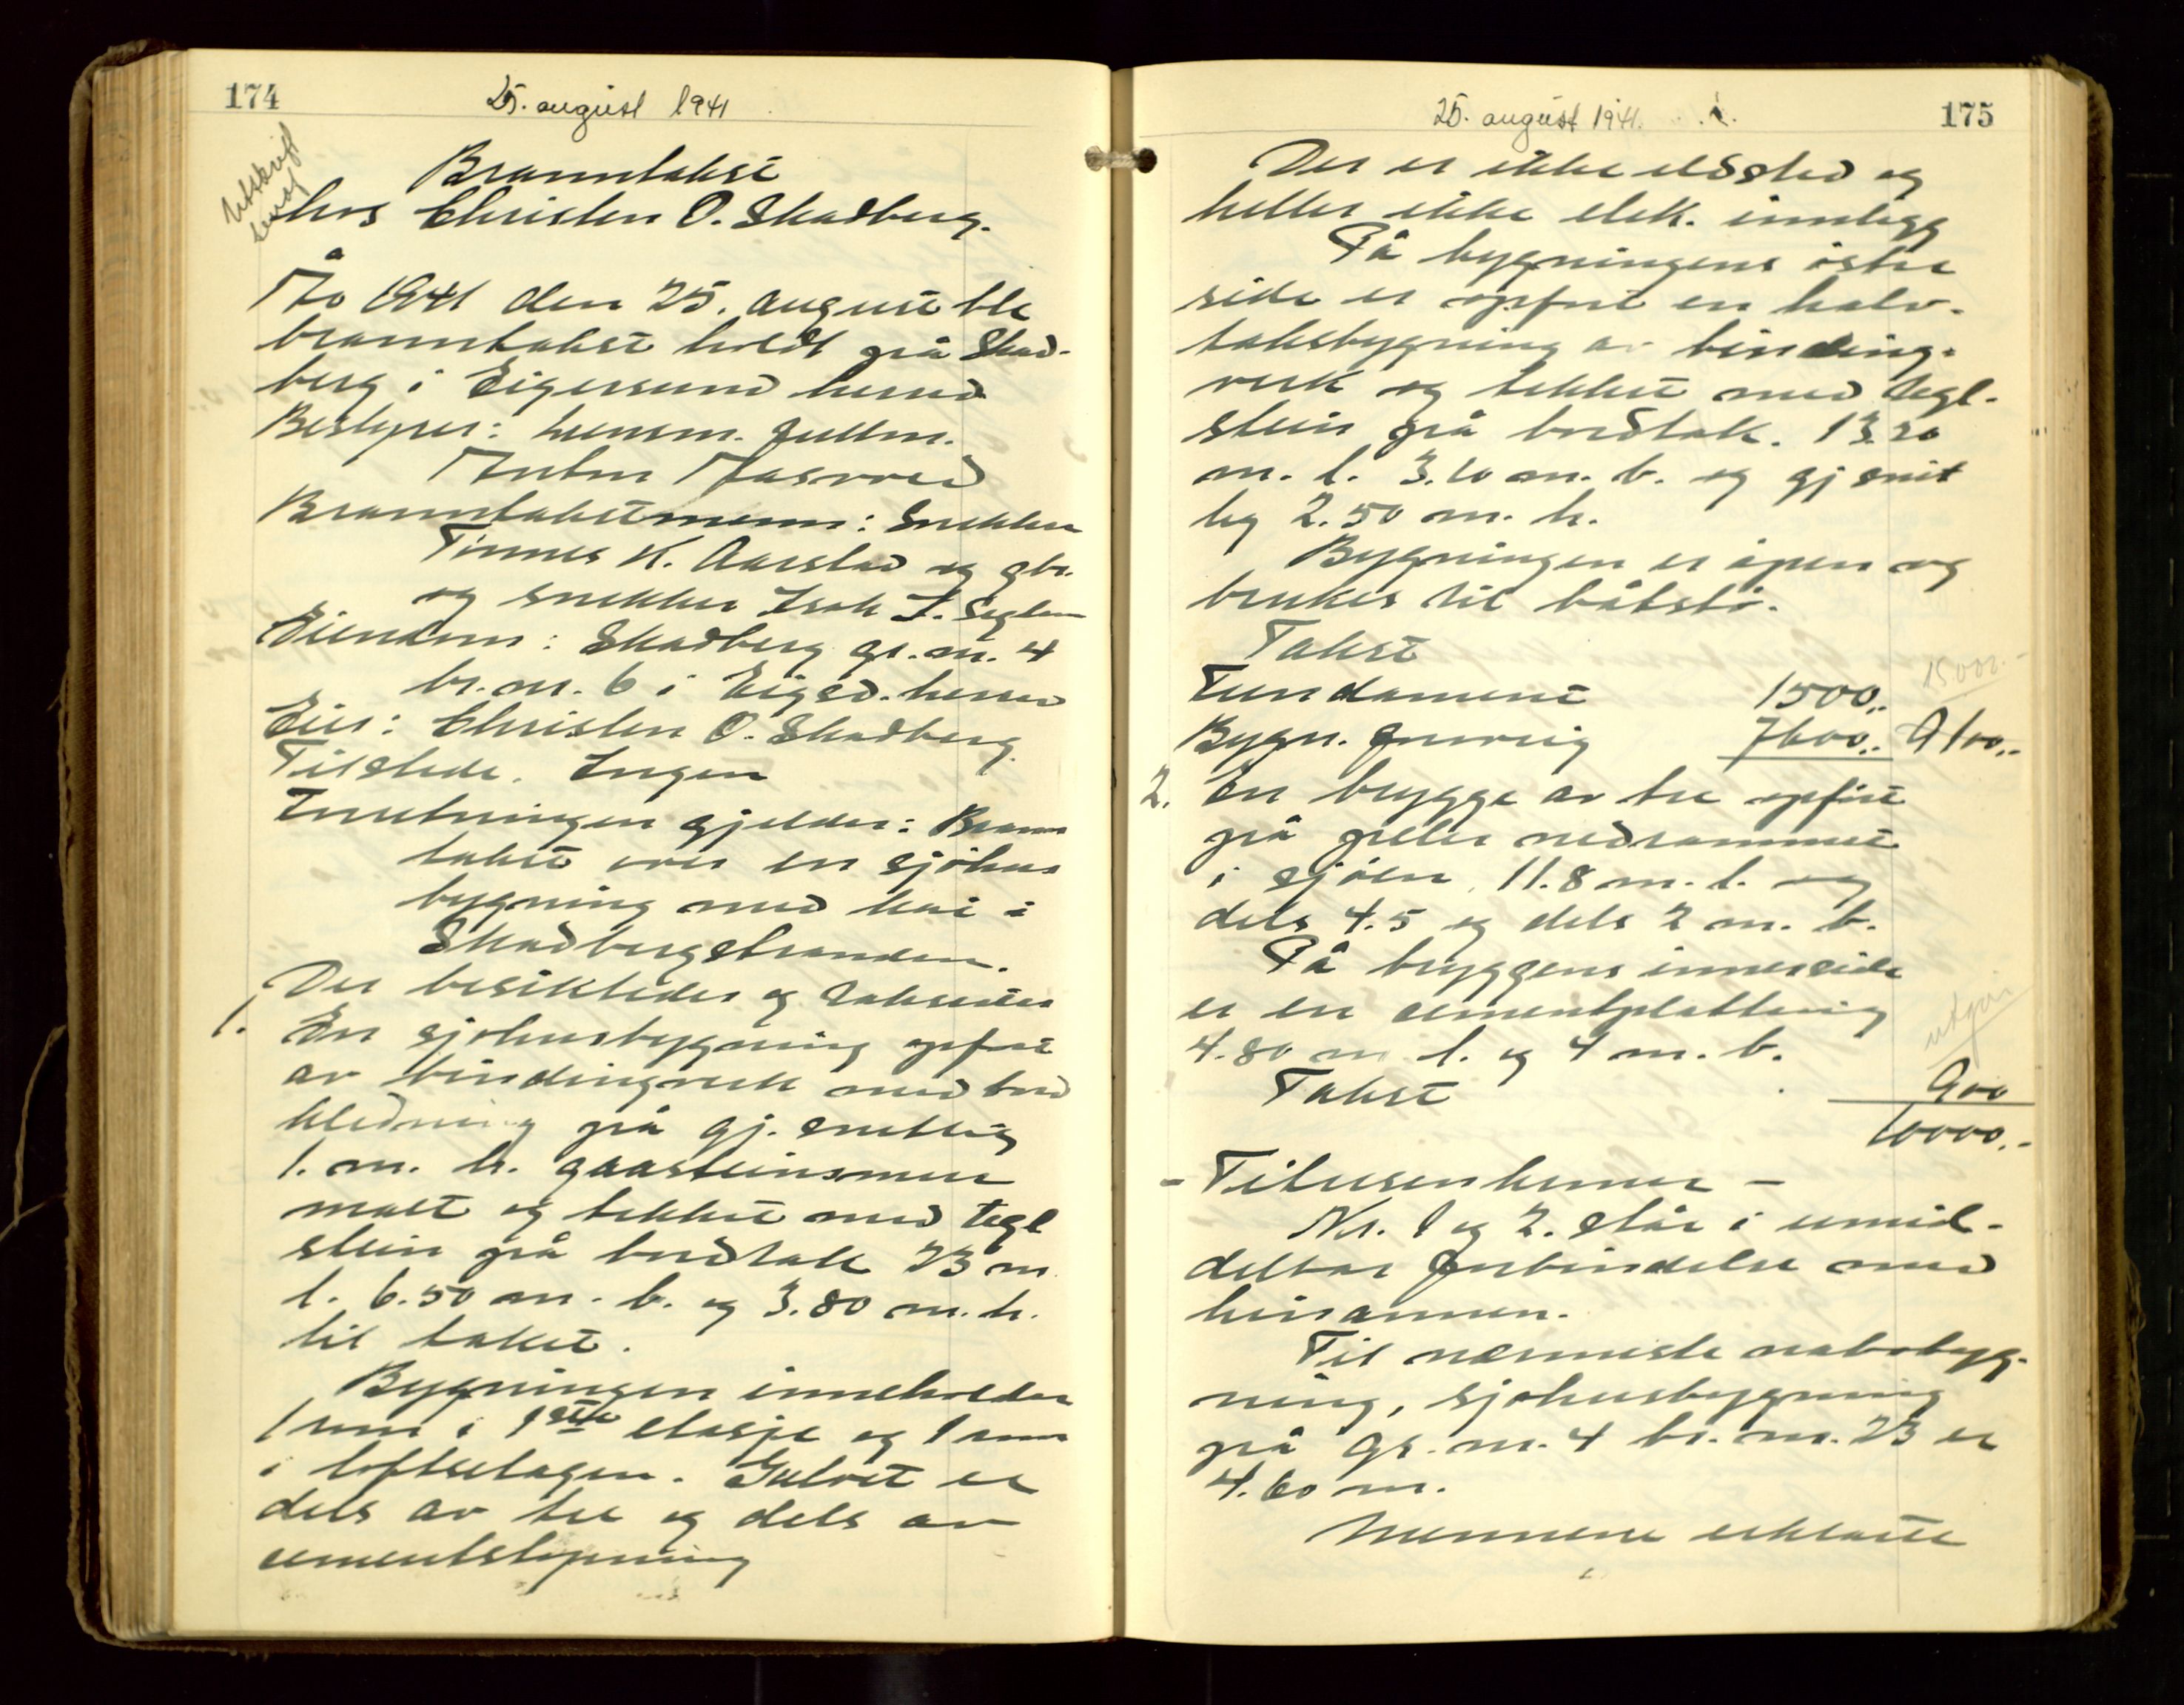 174
25. august 1941
Utskrift
send
Branntakst
hos Christen O. Skadberg.
År 1941 den 25. august ble
branntakst holdt på Skad-
berg i Eigersund herred
Bestyrer: lensm. fullm.
Anton Aasved
Branntakstmenn: Snekker
Tønnes K. Aarstad og gbr.
og snekker Isak I. Seglem
Eiendom: Skadberg gr. nr. 4
br. nr. 6 i Eigsd. herred
Eier: Christen O. Skadberg
Tilstede. Ingen
Innretningen gjelder: Brann
takst over en sjöhus
bygning med kai i
Skadbergstranden.
Der besiktedes og takseredes
1. En sjøhusbygning opført
av bindingverk med bord
kledning på gj. snittlig
1. m. h. gråsteinsmur
malt og tekket med tegl
stein på bordtak 23 m
l. 6.50 m. b. og 3.80 m. h.
til taket.
Bygningen inneholder
1 rum i 1ste etasje og 1 rum
i loftsetagen. Gulvet er
dels av tre og dels av
cementstøpning
25. august 1941.
175
Der er ikke ildsted og
heller ikke elek. innlegg
På bygningens östre
side er opført en halv-
taksbygning av binding-
verk og tekket med tegl-
stein på bordtak. 13.20
m. l. 3.10 m. b. og gj snit
lig 2.50 m. h.
Bygningen er åpen og
brukes til båtstö.
Takst
15000.-
Fundament 1500,-
Bygn. forøvrig 7600,- 9100,-
2. En brygge av tre opført
på peler nedrammet
i sjöen, 11.8 m. l. og
dels 4.5 og dels 2 m. b.
På bryggens innerside
er en cementplatting
utgår
4.80 m l. og 4 m. b.
Takst 900
10000.-
- Tilusenhemer -
Nr. 1 og 2. står i umid-
delbar forbindelse med
hinannen.
Til nærmeste nabobyg-
ning, sjøhusbygning
på gr. nr. 4 br. nr. 23 er
4.60 m.
Mennene erklærte